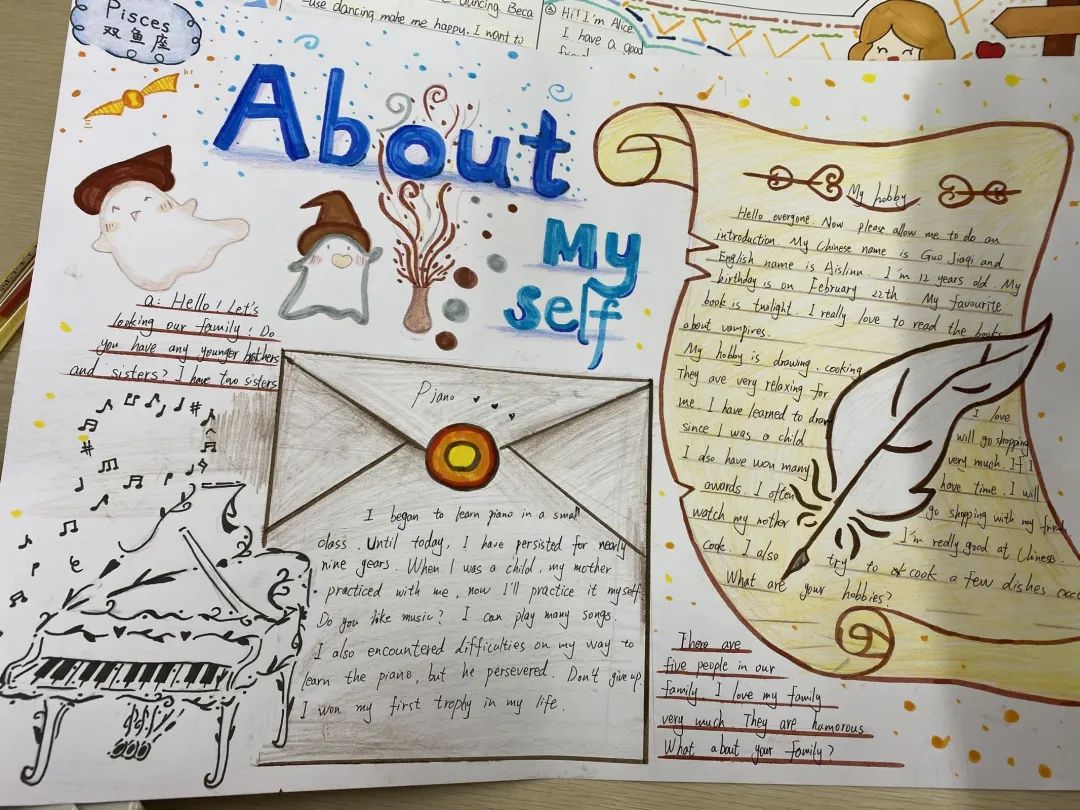 Pisces
双鱼座
Dancing Beca
-use dancing make me happy. I want to
Hi! I'm Alice.
I have a good
About
My
self
a: Hello! Let's
looking our family! Do
you have any younger brothers
and sisters? I have two sisters
Piano
I began to learn piano in a small
class. Until today, I have persisted for nearly
nine years. When I was a child, my mother
practiced with me, now I'll practice it myself.
Do you like music? I can play many songs.
I also encountered difficulties on my way to
learn the piano, but he persevered. Don't give up.
I won my first trophy in my life.
My hobby
Hello everyone. Now please allow me to do an
introduction. My Chinese name is Guo Jiaqi and
English name is Aislinn. I'm 12 years old. My
birthday is on February 22th My favourite
book is twilight. I really love to read the books
about vampires.
My hobby is drawing, cooking
They are very relaxing for
me. I have learned to draw
since I was a child
I also have won many
awards. I often
watch my mother
cook. I also
try to cook a few dishes
What are your hobbies?
I love
will go shopping
very much. If I
have time. I will
go shopping with my
I'm really good at Chinese.
There are
five people in our
family I love my family
very much They are humorous
What about your family?